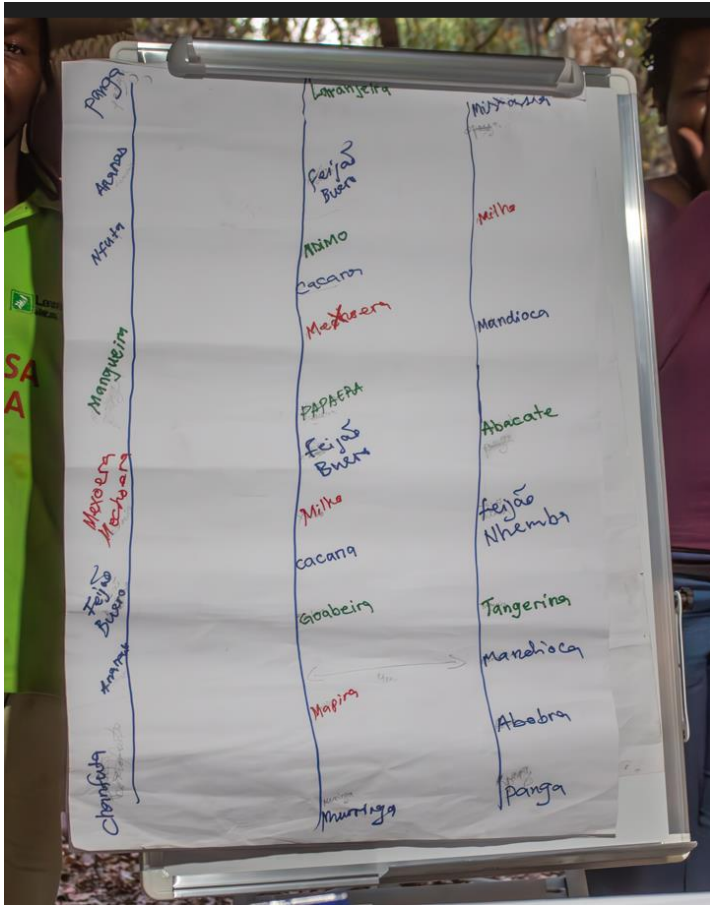 Panga
Ananas
Nfuta
Mangueira
Mexoera
Feijão
Buero
Ananas
Chanfuta
Laranjeira
Feijão
Buero
ADIMO
cacana
Mexoera
PAPAERA
Feijão
Buero
Milho
cacana
Goabeira
Mapira
Murringa
Milho
Mandioca
Abacate
feijão
Nhemba
Tangerina
Mandioca
Abobra
Panga
4m
SA
A